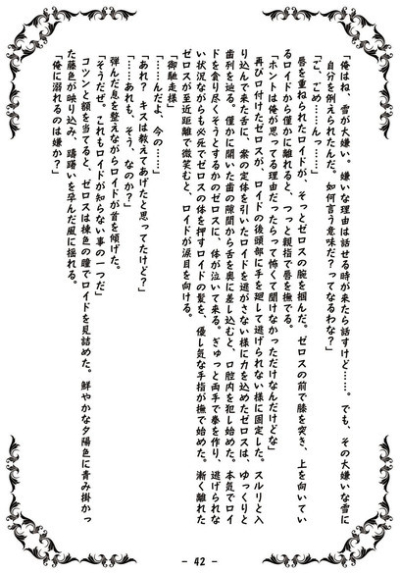 「俺はね、雪が大嫌い。嫌いな理由は話せる時が来たら話すけど……。でも、その大嫌いな雪に
自分を例えられたんだ。如何言う意味だ？ってなるわな？」
「ご、ごめ……んっ……」
唇を重ねられたロイドが、そっとゼロスの腕を掴んだ。ゼロスの前で膝を突き、上を向いてい
るロイドから僅かに離れると、つっと親指で唇を撫でる。
「ホントは俺が思ってる理由だったらって怖くて聞けなかっただけなんだけどな」
再び口付けたゼロスが、ロイドの後頭部に手を廻して逃げられない様に固定した。スルリと入
り込んで来た舌に、案の定体を引いたロイドを逃がさない様に力を込めたゼロスは、ゆっくりと
歯列を辿る。僅かに開いた歯の隙間から舌を奥に差し込むと、口腔内を犯し始めた。本気でロイ
ドを貪り尽くそうとするかのゼロスに、体が泣いて来る。ぎゅっと両手で拳を作り、逃げられな
い状況ながらも必死でゼロスの体を押すロイドの髪を、優し気な手指が撫で始めた。漸く離れた
ゼロスが至近距離で微笑むと、ロイドが涙目を向ける。
「御馳走様」
「……んだよ、今の……」
「あれ？　キスは教えてあげたと思ってたけど？」
「……あれも、そう、なのか？」
弾んだ息を整えながらロイドが首を傾げた。
「そうだぜ。これもロイドが知らない事の一つだ」
コツンと額を当てると、ゼロスは棟色の瞳でロイドを見詰めた。鮮やかな夕陽色に青み掛かっ
た藤色が映り込み、躊躇いを孕んだ風に揺れる。
「俺に溺れるのは嫌か？」
- 42 -